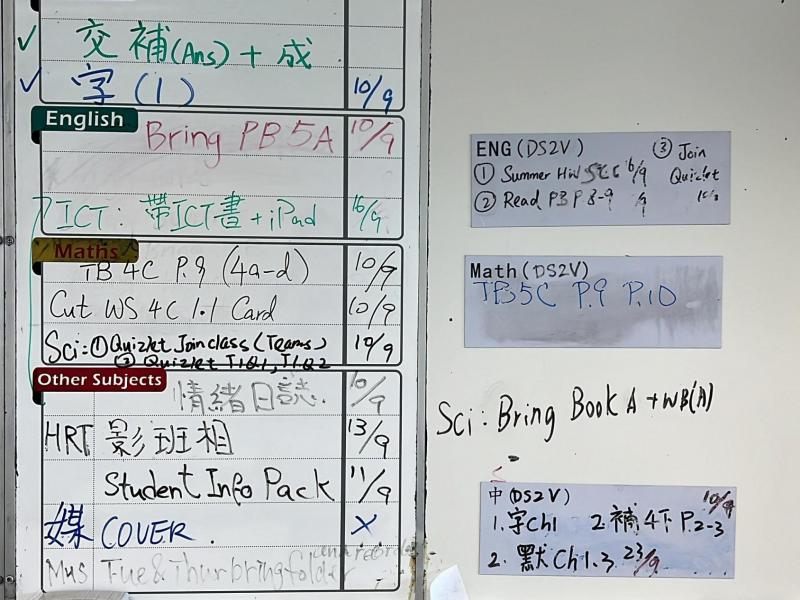 ✓ 交 補(Ans) + 成
✓ 字 (1) 10/9
English
Bring PB 5A 10/9
ICT: 帶ICT書 + iPad 16/9
Maths
TB 4C P.9 (4a-d) 10/9
Cut WS 4C 1.1 Card 10/9
Sci: ① Quizlet Join class (Teams) 10/9
② Quizlet T1Q1, T1Q2
Other Subjects
情緒日誌. 10/9
HRT 影班相 13/9
Student Info Pack 11/9
媒 COVER. X
Mus Tue & Thur bring folder
ENG (DS2V) ③ Join
① Summer HW 16/9 Quizlet
② Read PB P 8-9 /9
Math (DS2V)
TB5C P.9 P.10
Sci: Bring Book A + WB(A)
中 (DS2V) 10/9
1. 字Ch1 2. 補4下 P.2-3
2. 默Ch1.3 23/9